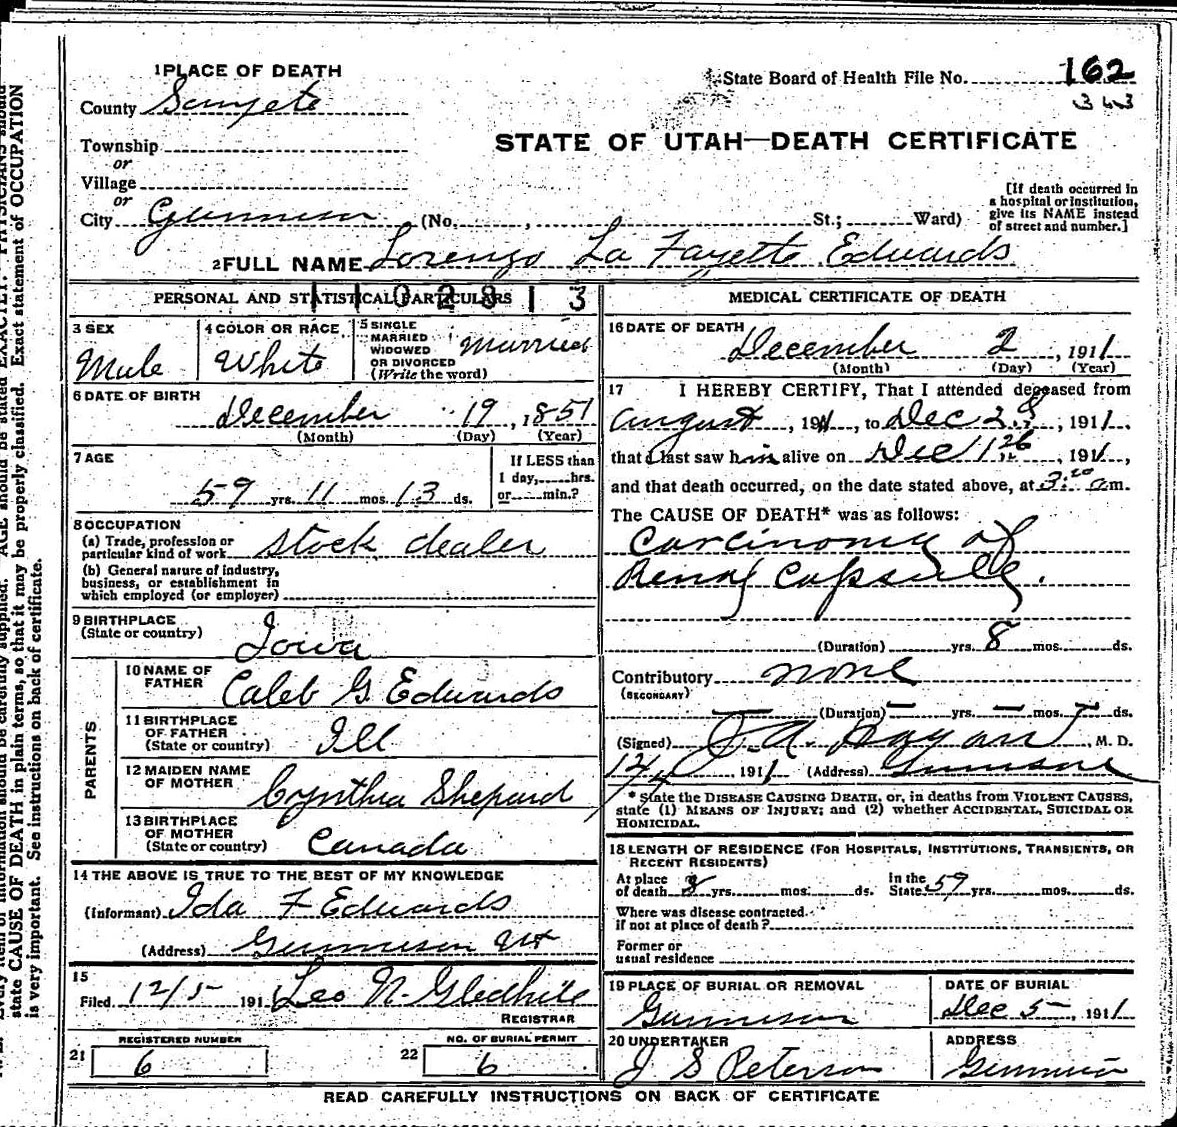 1 PLACE OF DEATH
State Board of Health File No. 162
County Sanpete
343
STATE OF UTAH—DEATH CERTIFICATE
Township
or
Village
or
City Gunnison (No. , St.; Ward)
[If death occurred in
a hospital or institution,
give its NAME instead
of street and number.]
2 FULL NAME Lorenzo La Fayette Edwards
PERSONAL AND STATISTICAL PARTICULARS
1102813
3 SEX
Male
4 COLOR OR RACE
White
5 SINGLE
MARRIED
WIDOWED
OR DIVORCED
(Write the word)
Married
6 DATE OF BIRTH
December 19, 1851
(Month) (Day) (Year)
7 AGE
59 yrs. 11 mos. 13 ds.
If LESS than
1 day, hrs.
or min.?
8 OCCUPATION
(a) Trade, profession or
particular kind of work stock dealer
(b) General nature of industry,
business, or establishment in
which employed (or employer)
9 BIRTHPLACE
(State or country)
Iowa
PARENTS
10 NAME OF
FATHER
Caleb G Edwards
11 BIRTHPLACE
OF FATHER
(State or country)
Ill
12 MAIDEN NAME
OF MOTHER
Cynthia Shepard
13 BIRTHPLACE
OF MOTHER
(State or country)
Canada
14 THE ABOVE IS TRUE TO THE BEST OF MY KNOWLEDGE
(Informant) Ida F Edwards
(Address) Gunnison Ut
15
Filed 12/5 191 Leo N. Gledhill
REGISTRAR
21
REGISTERED NUMBER
6
22
NO. OF BURIAL PERMIT
6
MEDICAL CERTIFICATE OF DEATH
16 DATE OF DEATH
December 2, 1911
(Month) (Day) (Year)
17 I HEREBY CERTIFY, That I attended deceased from
August, 1911, to Dec 2, 1911,
that I last saw him alive on Dec 1, 1911,
and that death occurred, on the date stated above, at 3:20 a m.
The CAUSE OF DEATH* was as follows:
Carcinoma of
Renal Capsule.
(Duration) yrs. 8 mos. ds.
Contributory none
(SECONDARY)
(Duration) — yrs. — mos. — ds.
(Signed) J. A. Hagan, M. D.
12/4 1911 (Address) Gunnison
* State the DISEASE CAUSING DEATH, or, in deaths from VIOLENT CAUSES,
state (1) MEANS OF INJURY; and (2) whether ACCIDENTAL, SUICIDAL OR
HOMICIDAL.
18 LENGTH OF RESIDENCE (FOR HOSPITALS, INSTITUTIONS, TRANSIENTS, OR
RECENT RESIDENTS)
At place
of death yrs. mos. ds.
In the
State 59 yrs. mos. ds.
Where was disease contracted
if not at place of death?
Former or
usual residence
19 PLACE OF BURIAL OR REMOVAL
Gunnison
DATE OF BURIAL
Dec 5, 1911
20 UNDERTAKER
J S Peterson
ADDRESS
Gunnison
READ CAREFULLY INSTRUCTIONS ON BACK OF CERTIFICATE
state CAUSE OF DEATH in plain terms, so that it may be properly classified. Exact statement of OCCUPATION
is very important. See instructions on back of certificate.